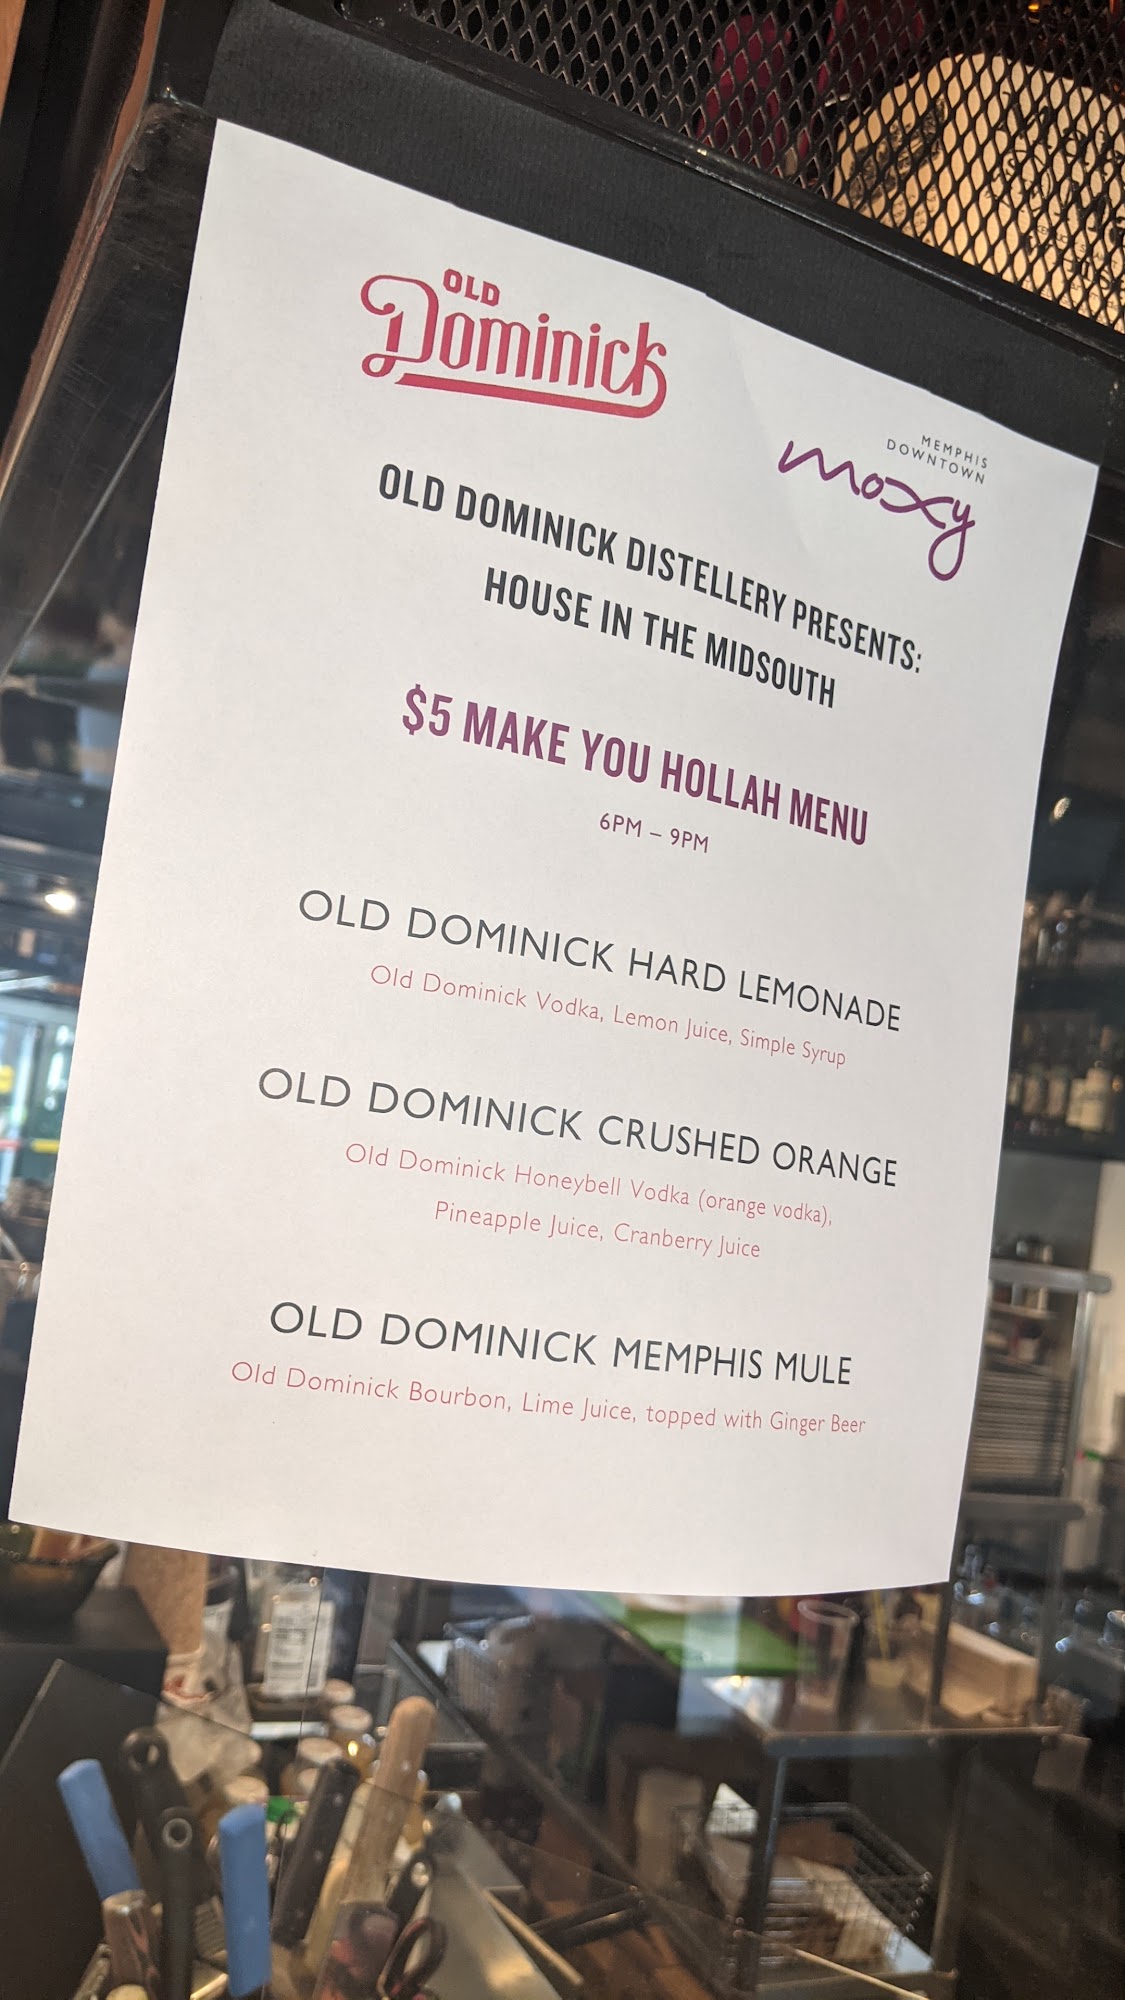 OLD
Dominick
MEMPHIS
DOWNTOWN
moxy
OLD DOMINICK DISTELLERY PRESENTS:
HOUSE IN THE MIDSOUTH
$5 MAKE YOU HOLLAH MENU
6PM – 9PM
OLD DOMINICK HARD LEMONADE
Old Dominick Vodka, Lemon Juice, Simple Syrup
OLD DOMINICK CRUSHED ORANGE
Old Dominick Honeybell Vodka (orange vodka),
Pineapple Juice, Cranberry Juice
OLD DOMINICK MEMPHIS MULE
Old Dominick Bourbon, Lime Juice, topped with Ginger Beer